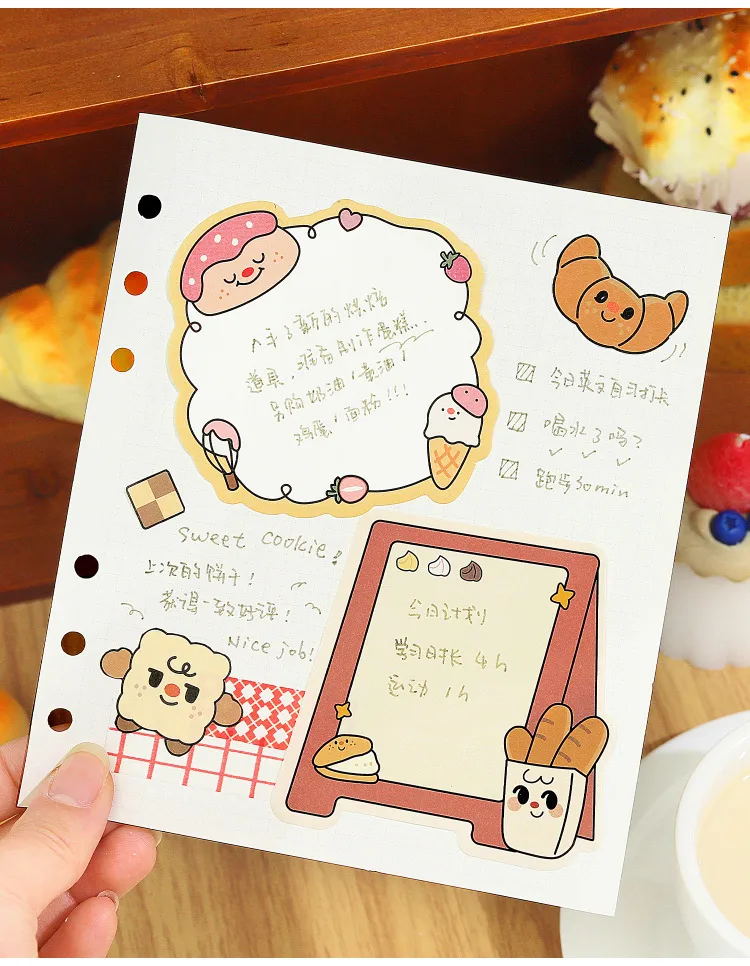 入手了新的烘焙
道具,准备制作蛋糕...
另购奶油/黄油/
鸡蛋/面粉!!!
今日英文自习打卡
喝水了吗?
跑步30min
Sweet cookie!
上次的饼干!
获得一致好评!
Nice job!
今日计划
学习时长 4h
运动 1h